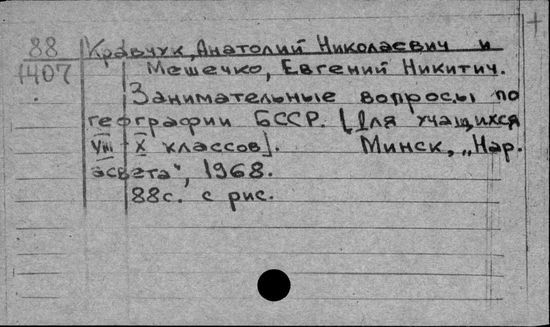 88
1407
Кравчук, Анатолий Николаевич и
Мешечко, Евгений Никитич.
Занимательные вопросы по
географии БССР. [Для учащихся
VIII - X классов]. Минск, „Нар.
асвета", 1968.
88с. с рис.